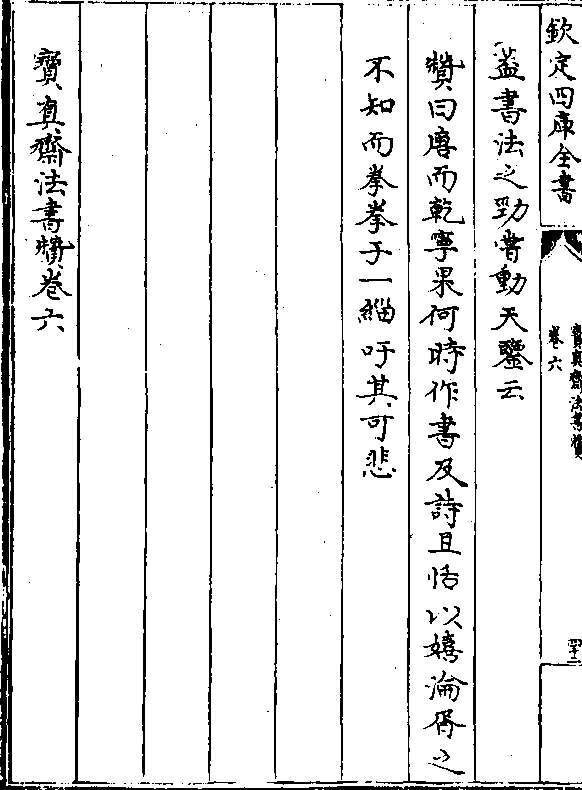 欽定四庫全書
寶真齋法書贊
卷六
四十二
蓋書法之勁嘗動天鑒云
贊曰唐而乾寧果何時作書及詩且恬以嬉淪胥之
不知而拳拳于一緇吁其可悲
寶真齋法書贊卷六